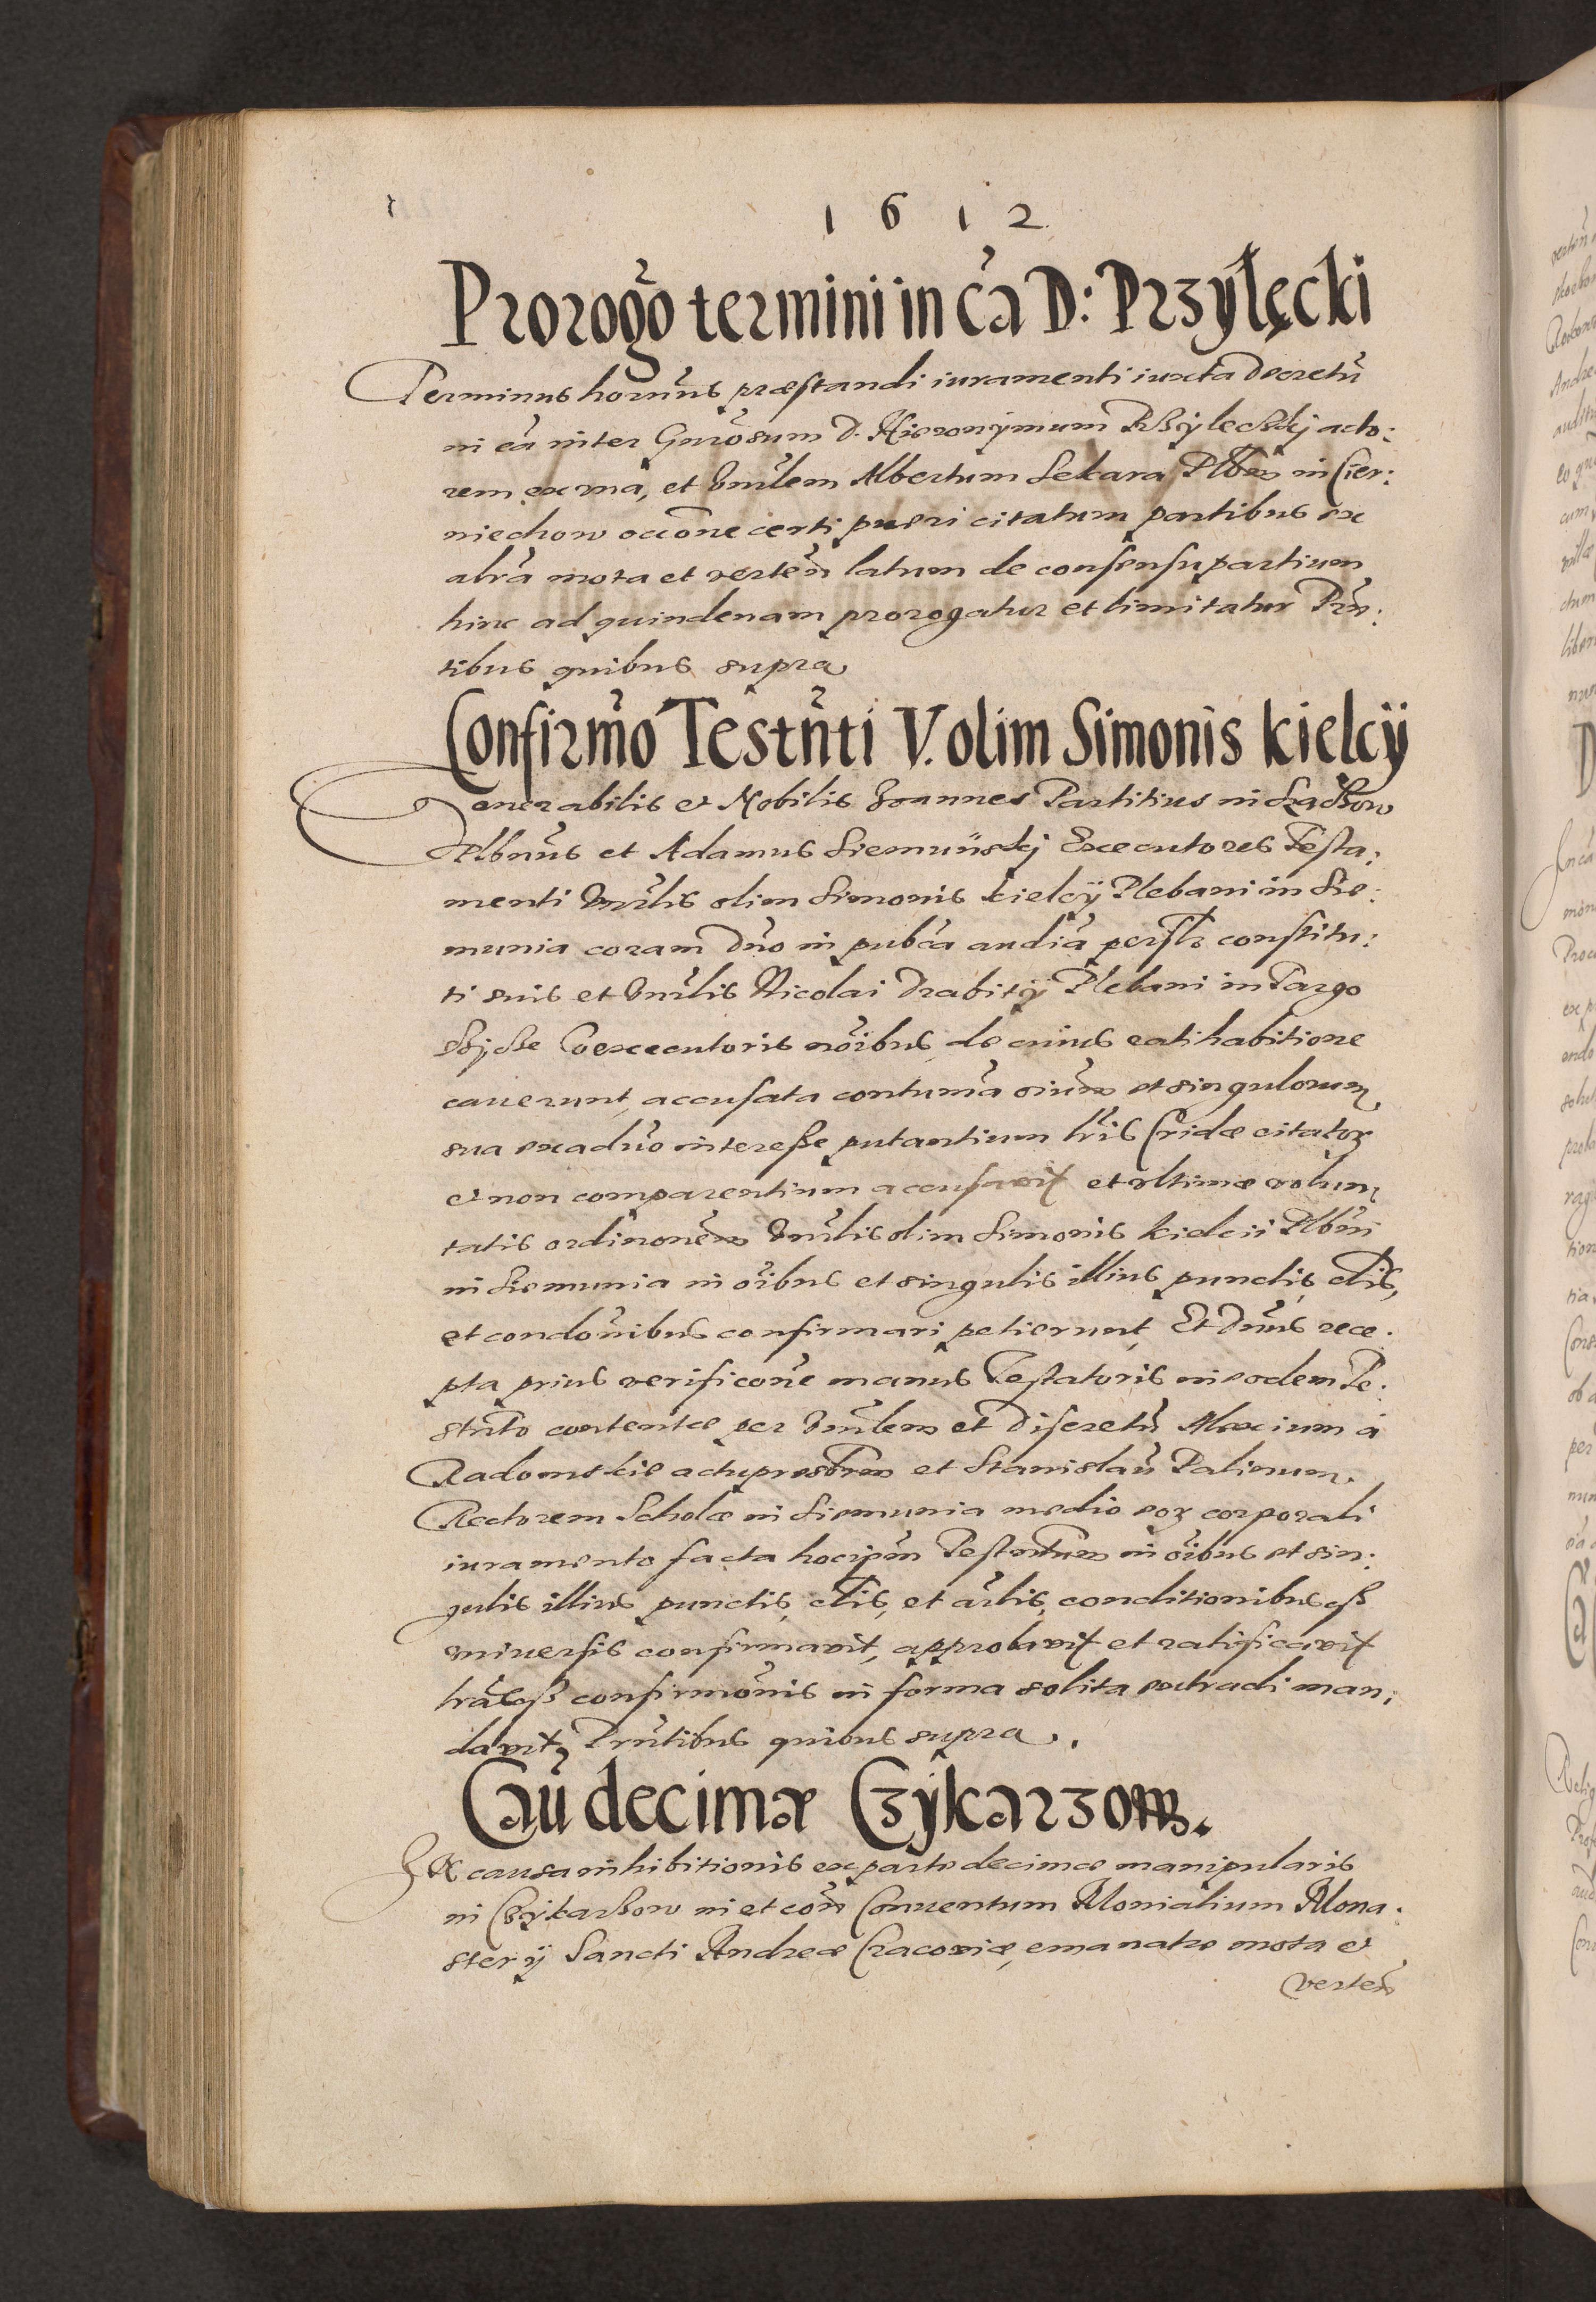 1612
Prorogo termini in ca D: Przyłęcki
Terminus horñus præstandi iuramenti iuxta Decretũ
in cã inter Gñrosum D. Hieronymum Przyleczkij acto:
rem ex vna, et Vñrlem Albertum Sekara Plbm in Cier:
niechow occõne certi pueri citatum partibus ex
altrã mota et verteñ latum de consensu partium
hinc ad quindenam prorogatur et limitatur Prñ:
tibus quibus supra
Confirmõ Testñti V. olim Simonis Kielcÿ
Venerabilis et Nobilis Joannes Partitius in
Plbnũs et Adamus Siemuński Executores Testa:
menti Vñrlis olim Simonis Kielcÿ Plebani in Sie:
munia coram Dño in pubcã audiã persłr constitu:
ti suis et Vñrlis Nicolai Drabitÿ Plebani in Targo
Coexecutoris nõibus, de cuius ratihabitione
cauerunt, accusata contumã oium et singulorum
sua exaduo interesse putantium lris Cridæ citatoꝝ
et non comparentium accusavit et vltimæ volun
tatis ordinonem Vñrlis olim Simonis Kielcii Plbñi
in Siemunia in oĩbus et singulis illius punctis, clis,
et condõnibus confirmari petierunt, Et Dnũs rece:
pta prius verificone manus Testatoris in eodem Te:
stñto contentæ per Vñrlem et Discretũ Alexium à
Radomskie actu prestrem et Stanislaũ Palinum.
Rectorem Scholæ in Siemunia medio eoꝝ corporali
iuramento facta hocipm Testmtum in oĩbus et sin:
gulis illius punctis, clis, et artlis, conditionibusqß
vniuersis confirmavit, approbavit et ratificavit
lrasqß confirmõnis in forma solita extradi man:
davit, Prñtibus quibus supra.
Caũ decimæ Czykarzow.
In causa inhibitionis ex parte decimæ manipularis
in Czykarzow in et coñ Conuentum Monialium Mona:
sterÿ Sancti Andreæ Cracoviæ, emanatæ mota et
verteñ